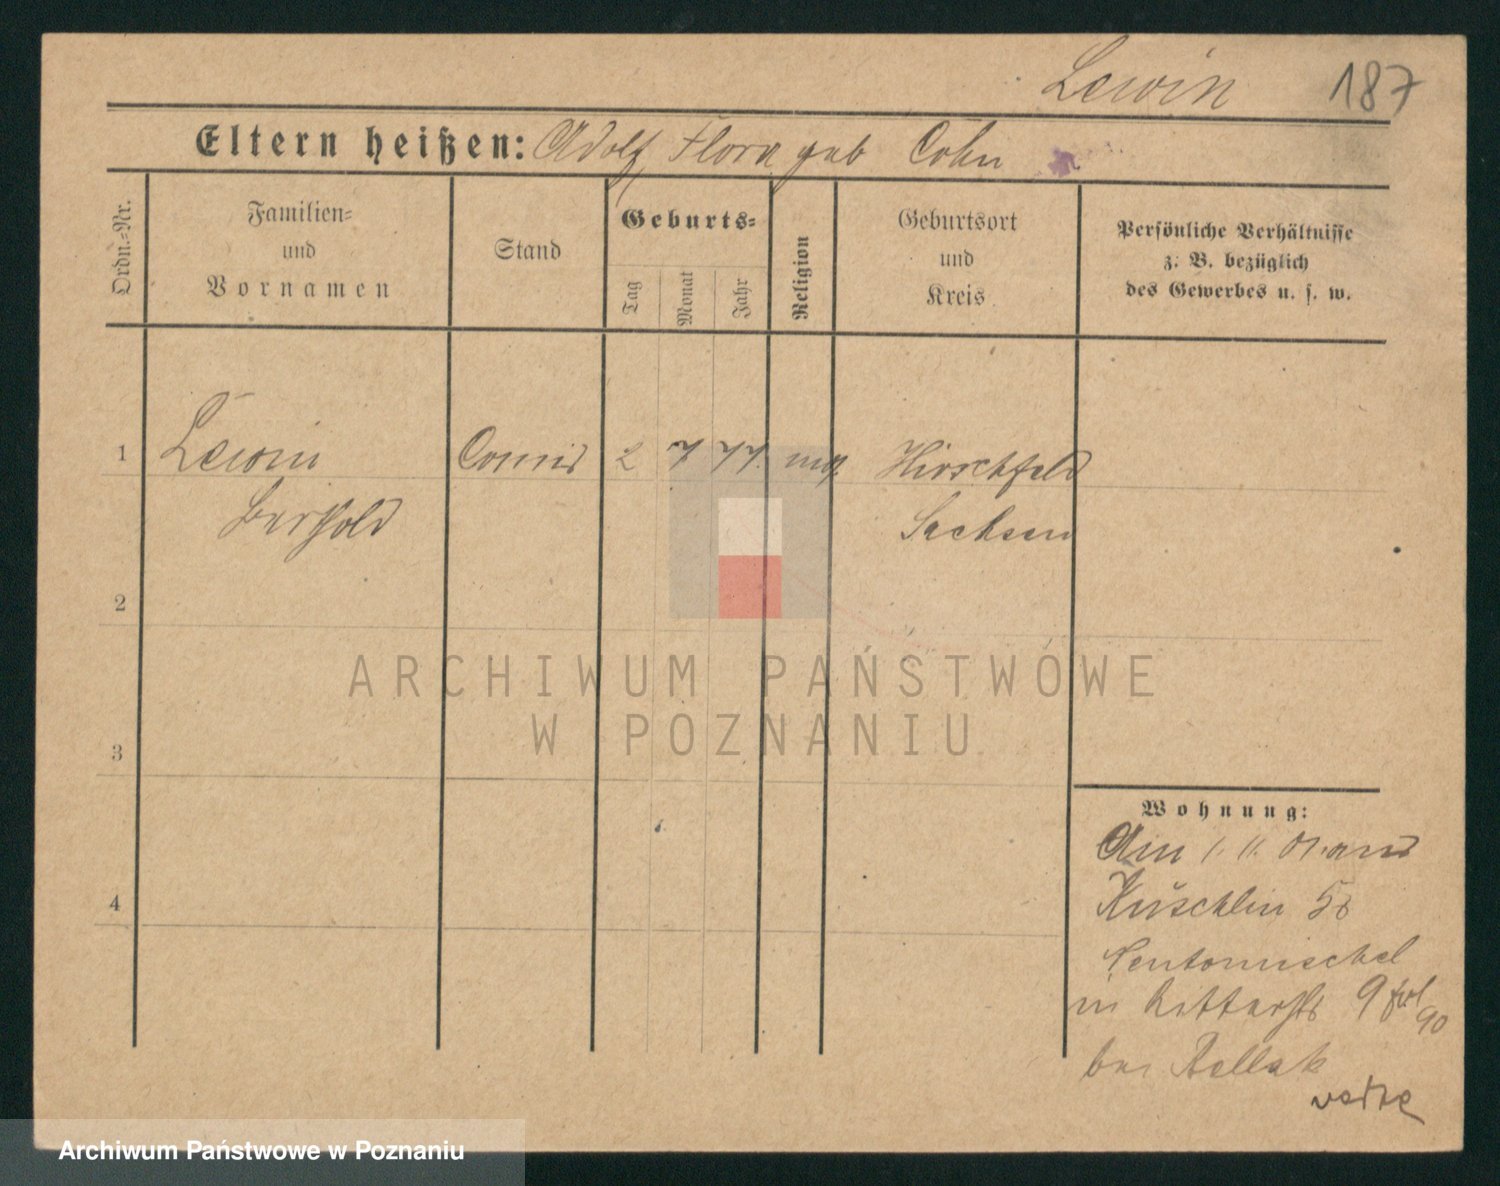 Lewin 187
Eltern heißen: Adolf, Flora geb Cohn
Ordn.-Nr.
Familien-
und
Vornamen
Stand
Geburts-
Tag
Monat
Jahr
Religion
Geburtsort
und
Kreis
Persönliche Verhältnisse
z. B. bezüglich
des Gewerbes u. s. w.
1 Lewin Commis 2 7 77. mos Hirschfeld
Berthold Sachsen
2
3
4
Wohnung:
Am 1. 11. 01. aus
Kuschlin
Neutomischel
in Ritterstr 9
bei
ARCHIWUM PAŃSTWOWE
W POZNANIU
Archiwum Państwowe w Poznaniu